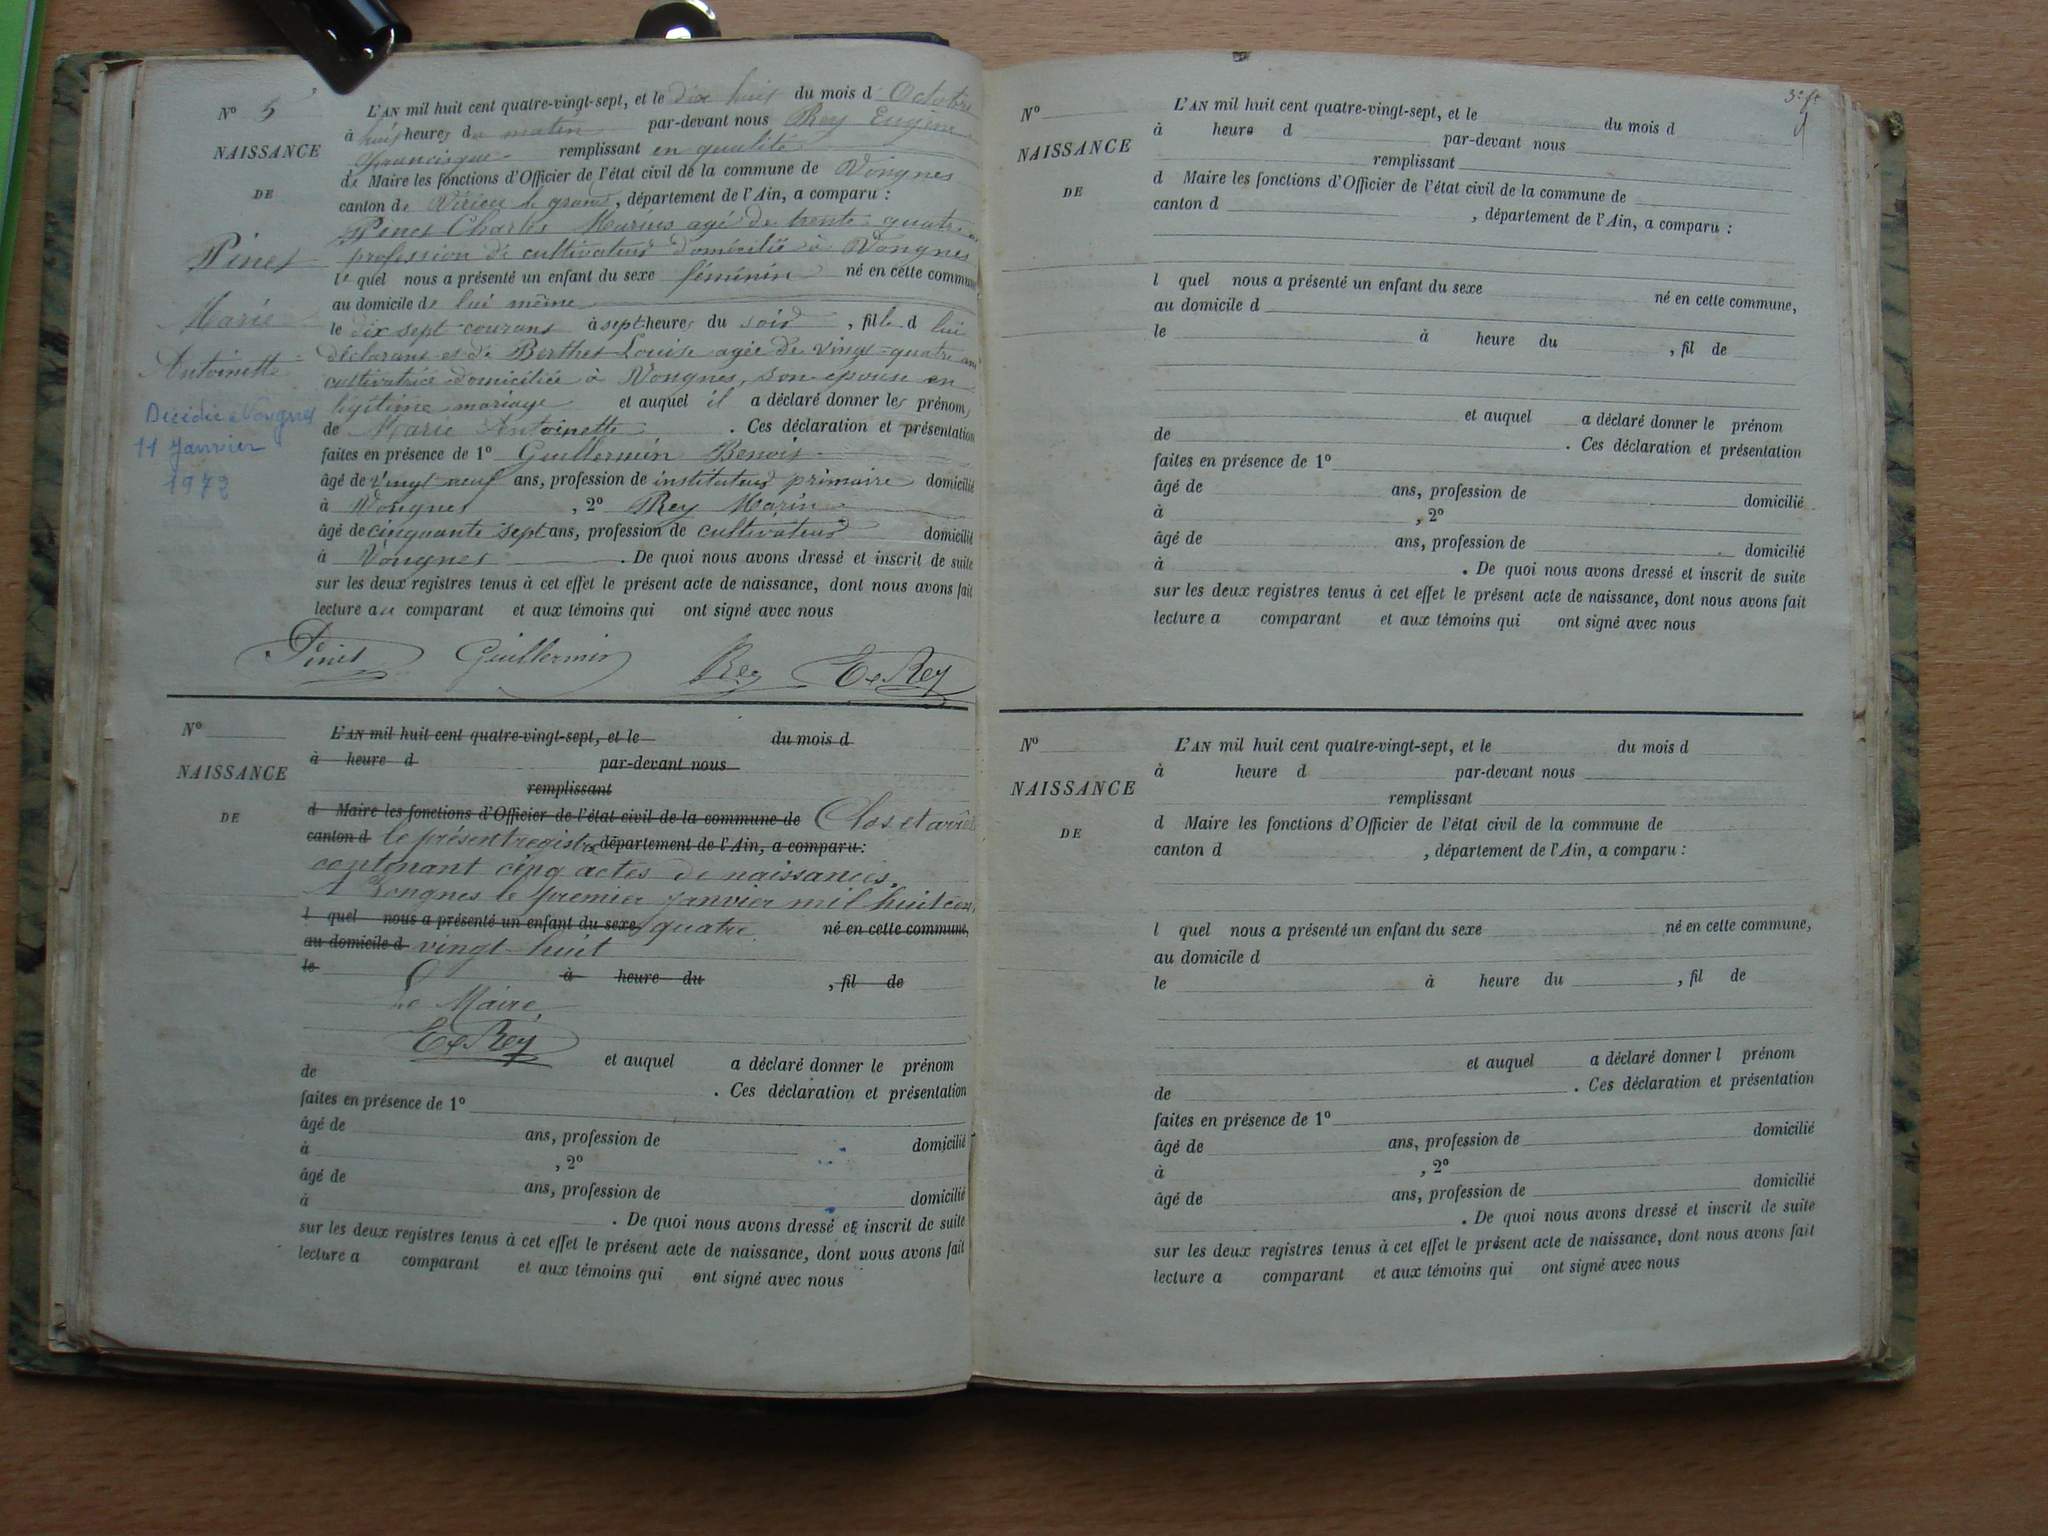 N° 5
NAISSANCE
DE
Pinet
Marie
Antoinette
Décédée à Vongnes
11 Janvier
1972
L'AN mil huit cent quatre-vingt-sept, et le dix huit du mois d' Octobre
à huit heures du matin par-devant nous Rey Eugène
Francisque remplissant en qualité
de Maire les fonctions d'Officier de l'état civil de la commune de Vongnes
canton de Virieu le grand, département de l'Ain, a comparu :
Pinet Charles Marius agé de trente quatre
profession de cultivateur domicilié à Vongnes
le quel nous a présenté un enfant du sexe féminin né en cette commune
au domicile de lui même
le dix sept courant à sept heures du soir, fille d lui
déclarant et de Berthet Louise agée de vingt-quatre ans
cultivatrice domiciliée à Vongnes, son épouse en
légitime mariage et auquel il a déclaré donner les prénoms
de Marie Antoinette. Ces déclaration et présentation
faites en présence de 1° Guillermin Benoit
âgé de vingt neuf ans, profession de instituteur primaire domicilié
à Vongnes, 2° Rey Marin
âgé de cinquante sept ans, profession de cultivateur domicilié
à Vongnes. De quoi nous avons dressé et inscrit de suite
sur les deux registres tenus à cet effet le présent acte de naissance, dont nous avons fait
lecture au comparant et aux témoins qui ont signé avec nous
Pinet Guillermin Rey E Rey
N°
NAISSANCE
DE
L'AN mil huit cent quatre-vingt-sept, et le du mois d
à heure d par-devant nous
remplissant
d Maire les fonctions d'Officier de l'état civil de la commune de Clos et arrêté
canton d le présent registre département de l'Ain, a comparu :
contenant cinq actes de naissances.
A Vongnes le premier janvier mil huit cent
l quel nous a présenté un enfant du sexe quatre né en cette commune,
au domicile d vingt huit
le à heure du , fil de
Le Maire,
E Rey
et auquel a déclaré donner le prénom
de . Ces déclaration et présentation
faites en présence de 1°
âgé de ans, profession de domicilié
à , 2°
âgé de ans, profession de domicilié
à . De quoi nous avons dressé et inscrit de suite
sur les deux registres tenus à cet effet le présent acte de naissance, dont nous avons fait
lecture a comparant et aux témoins qui ont signé avec nous
N°
NAISSANCE
DE
L'AN mil huit cent quatre-vingt-sept, et le du mois d
à heure d par-devant nous
remplissant
d Maire les fonctions d'Officier de l'état civil de la commune de
canton d , département de l'Ain, a comparu :
l quel nous a présenté un enfant du sexe né en cette commune,
au domicile d
le à heure du , fil de
et auquel a déclaré donner le prénom
de . Ces déclaration et présentation
faites en présence de 1°
âgé de ans, profession de domicilié
à , 2°
âgé de ans, profession de domicilié
à . De quoi nous avons dressé et inscrit de suite
sur les deux registres tenus à cet effet le présent acte de naissance, dont nous avons fait
lecture a comparant et aux témoins qui ont signé avec nous
N°
NAISSANCE
DE
L'AN mil huit cent quatre-vingt-sept, et le du mois d
à heure d par-devant nous
remplissant
d Maire les fonctions d'Officier de l'état civil de la commune de
canton d , département de l'Ain, a comparu :
l quel nous a présenté un enfant du sexe né en cette commune,
au domicile d
le à heure du , fil de
et auquel a déclaré donner l prénom
de . Ces déclaration et présentation
faites en présence de 1°
âgé de ans, profession de domicilié
à , 2°
âgé de ans, profession de domicilié
. De quoi nous avons dressé et inscrit de suite
sur les deux registres tenus à cet effet le présent acte de naissance, dont nous avons fait
lecture a comparant et aux témoins qui ont signé avec nous